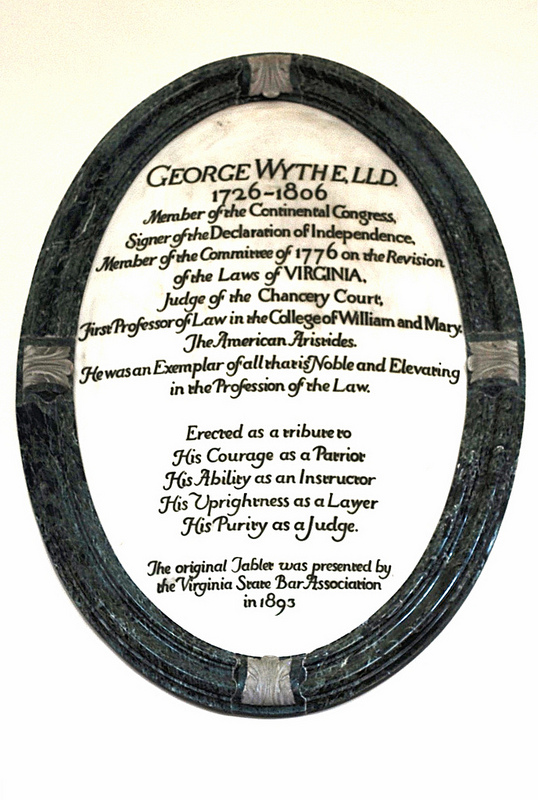 GEORGE WYTHE, LLD.
1726-1806
Member of the Continental Congress,
Signer of the Declaration of Independence,
Member of the Committee of 1776 on the Revision
of the Laws of VIRGINIA,
Judge of the Chancery Court,
First Professor of Law in the College of William and Mary.
The American Aristides.
He was an Exemplar of all that is Noble and Elevating
in the Profession of the Law.
Erected as a tribute to
His Courage as a Patriot
His Ability as an Instructor
His Uprightness as a Lawyer
His Purity as a Judge.
The original Tablet was presented by
the Virginia State Bar Association
in 1893